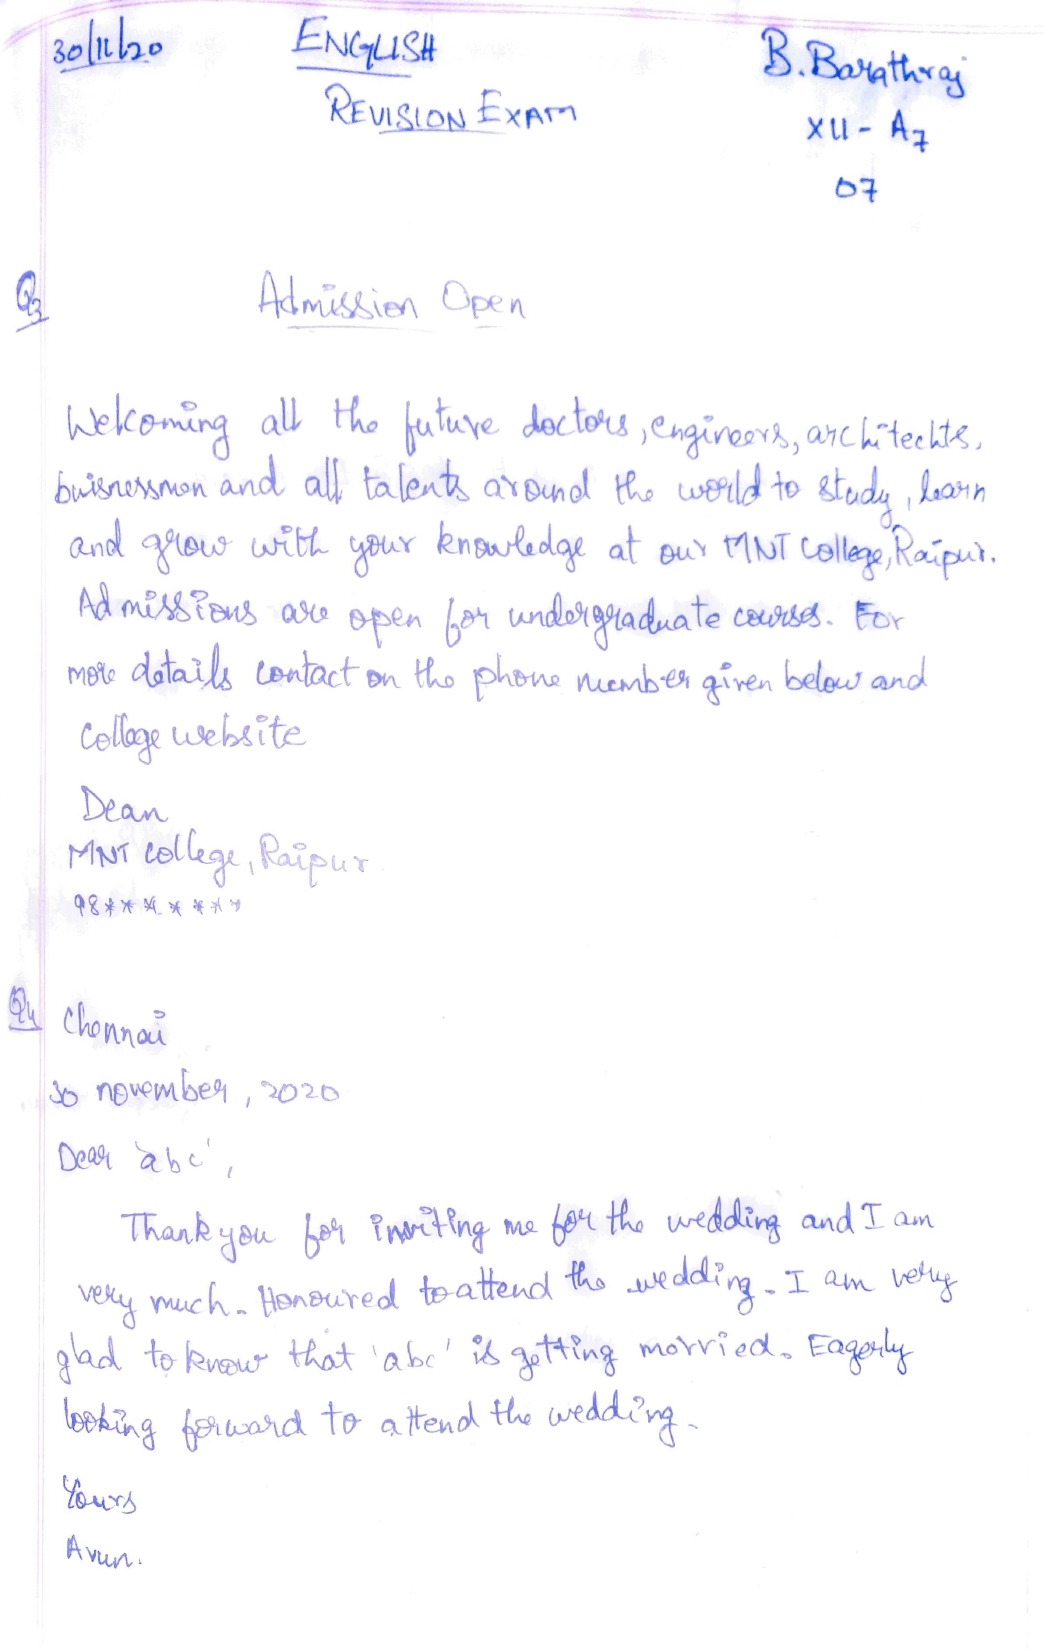 30/11/20
ENGLISH
REVISION EXAM
B. Barathraj
XII - A7
07
Q3
Admission Open
Welcoming all the future doctors, engineers, architechts,
buisnessmen and all talents around the world to study, learn
and grow with your knowledge at our MNT College, Raipur.
Admissions are open for undergraduate courses. For
more details contact on the phone number given below and
College website
Dean
MNT college, Raipur
98********
Q4
Chennai
30 november, 2020
Dear 'abc',
Thank you for inviting me for the wedding and I am
very much. Honoured to attend the wedding. I am very
glad to know that 'abc' is getting morried. Eagerly
looking forward to attend the wedding.
Yours
Arun.